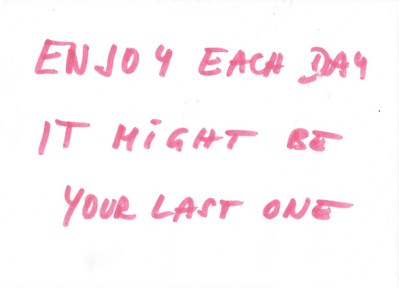 ENJOY EACH DAY
IT MiGHT BE
YOUR LAST ONE